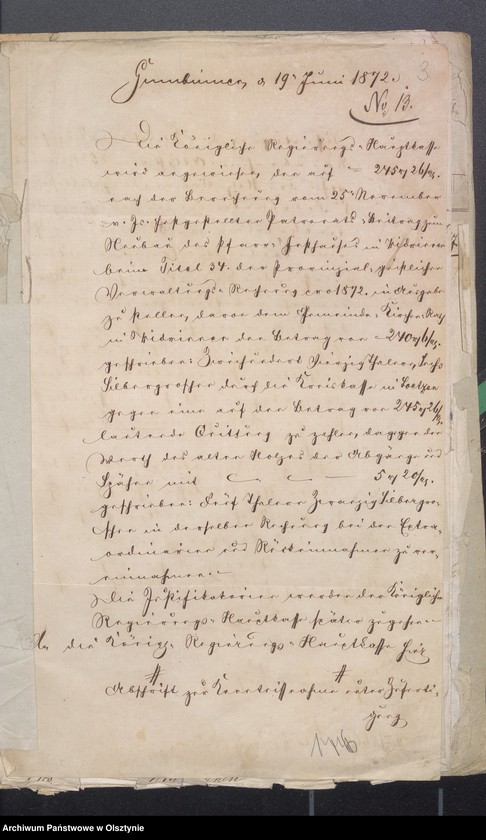 Gumbinnen, d 19t Juni 1872.
3
No 13.
Die Königliche Regierungs-Hauptkasse
wird angewiesen, den auf = 245 rt 26 sg.
nach der Berechnung vom 25t November
v. Js. festgestellten Patronats-Beitrag zum
Neubau des Pfarr- hauses in Widminnen
beim Titel 34. der Provinzial- geistlichen
Verwaltungs-Rechnung pro 1872. in Ausgabe
zu stellen, davon dem Gemeinde-Kirchen-Rath
in Widminnen den Betrag von = 240 rt 6 sg.
geschrieben: Zweihundert Vierzig Thaler, Sechs
Silbergroschen durch die Kreiskasse in Loetzen
gegen eine auf den Betrag von 245 rt 26 sg.
lautende Quittung zu zahlen, dagegen den
Werth des alten Holzes der Abgänge und
Spähne mit — 5 rt 20 sg.
geschrieben: Fünf Thaler Zwanzig Silbergro-
schen in derselben Rechnung bei den Extra-
ordinarien und Rückeinnahmen zu ver-
einnahmen.
Die Justifikatorien werden der Königlichen
Regierungs-Hauptkasse später zugehen
An die Königl. Regierungs-Hauptkasse hier
Abschrift zur Kenntnissnahme unter Zuferti-
gung
Archiwum Państwowe w Olsztynie